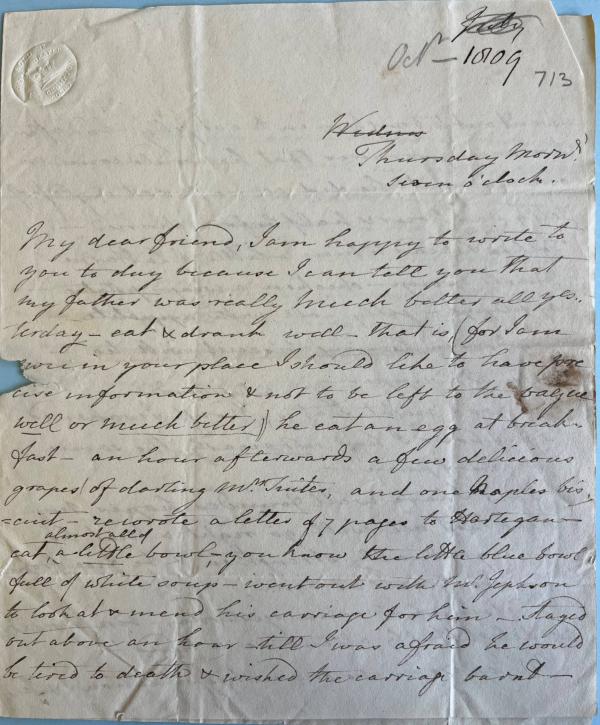 Octr - 1809
713
Wednes
Thursday Morng
seven o'clock.
My dear friend, I am happy to write to
you to day because I can tell you that
my father was really much better all yes.
terday - eat & drank well - that is, (for I am
sure in your place I should like to have pre
cise information & not to be left to the vague
well or much better) he eat an egg at break-
fast - an hour afterwards a few delicious
grapes (of darling Mrs Tuites, and one Naples bis,
=cuit - rewrote a letter of 7 pages to Hartegan -
almost all of
eat, a little bowl, - you know the little blue bowl,
full of white soup - went out with Mr Jephson
to look at & mend his carriage for him - staged
out above an hour - till I was afraid he would
be tired to death & wished the carriage burnt -